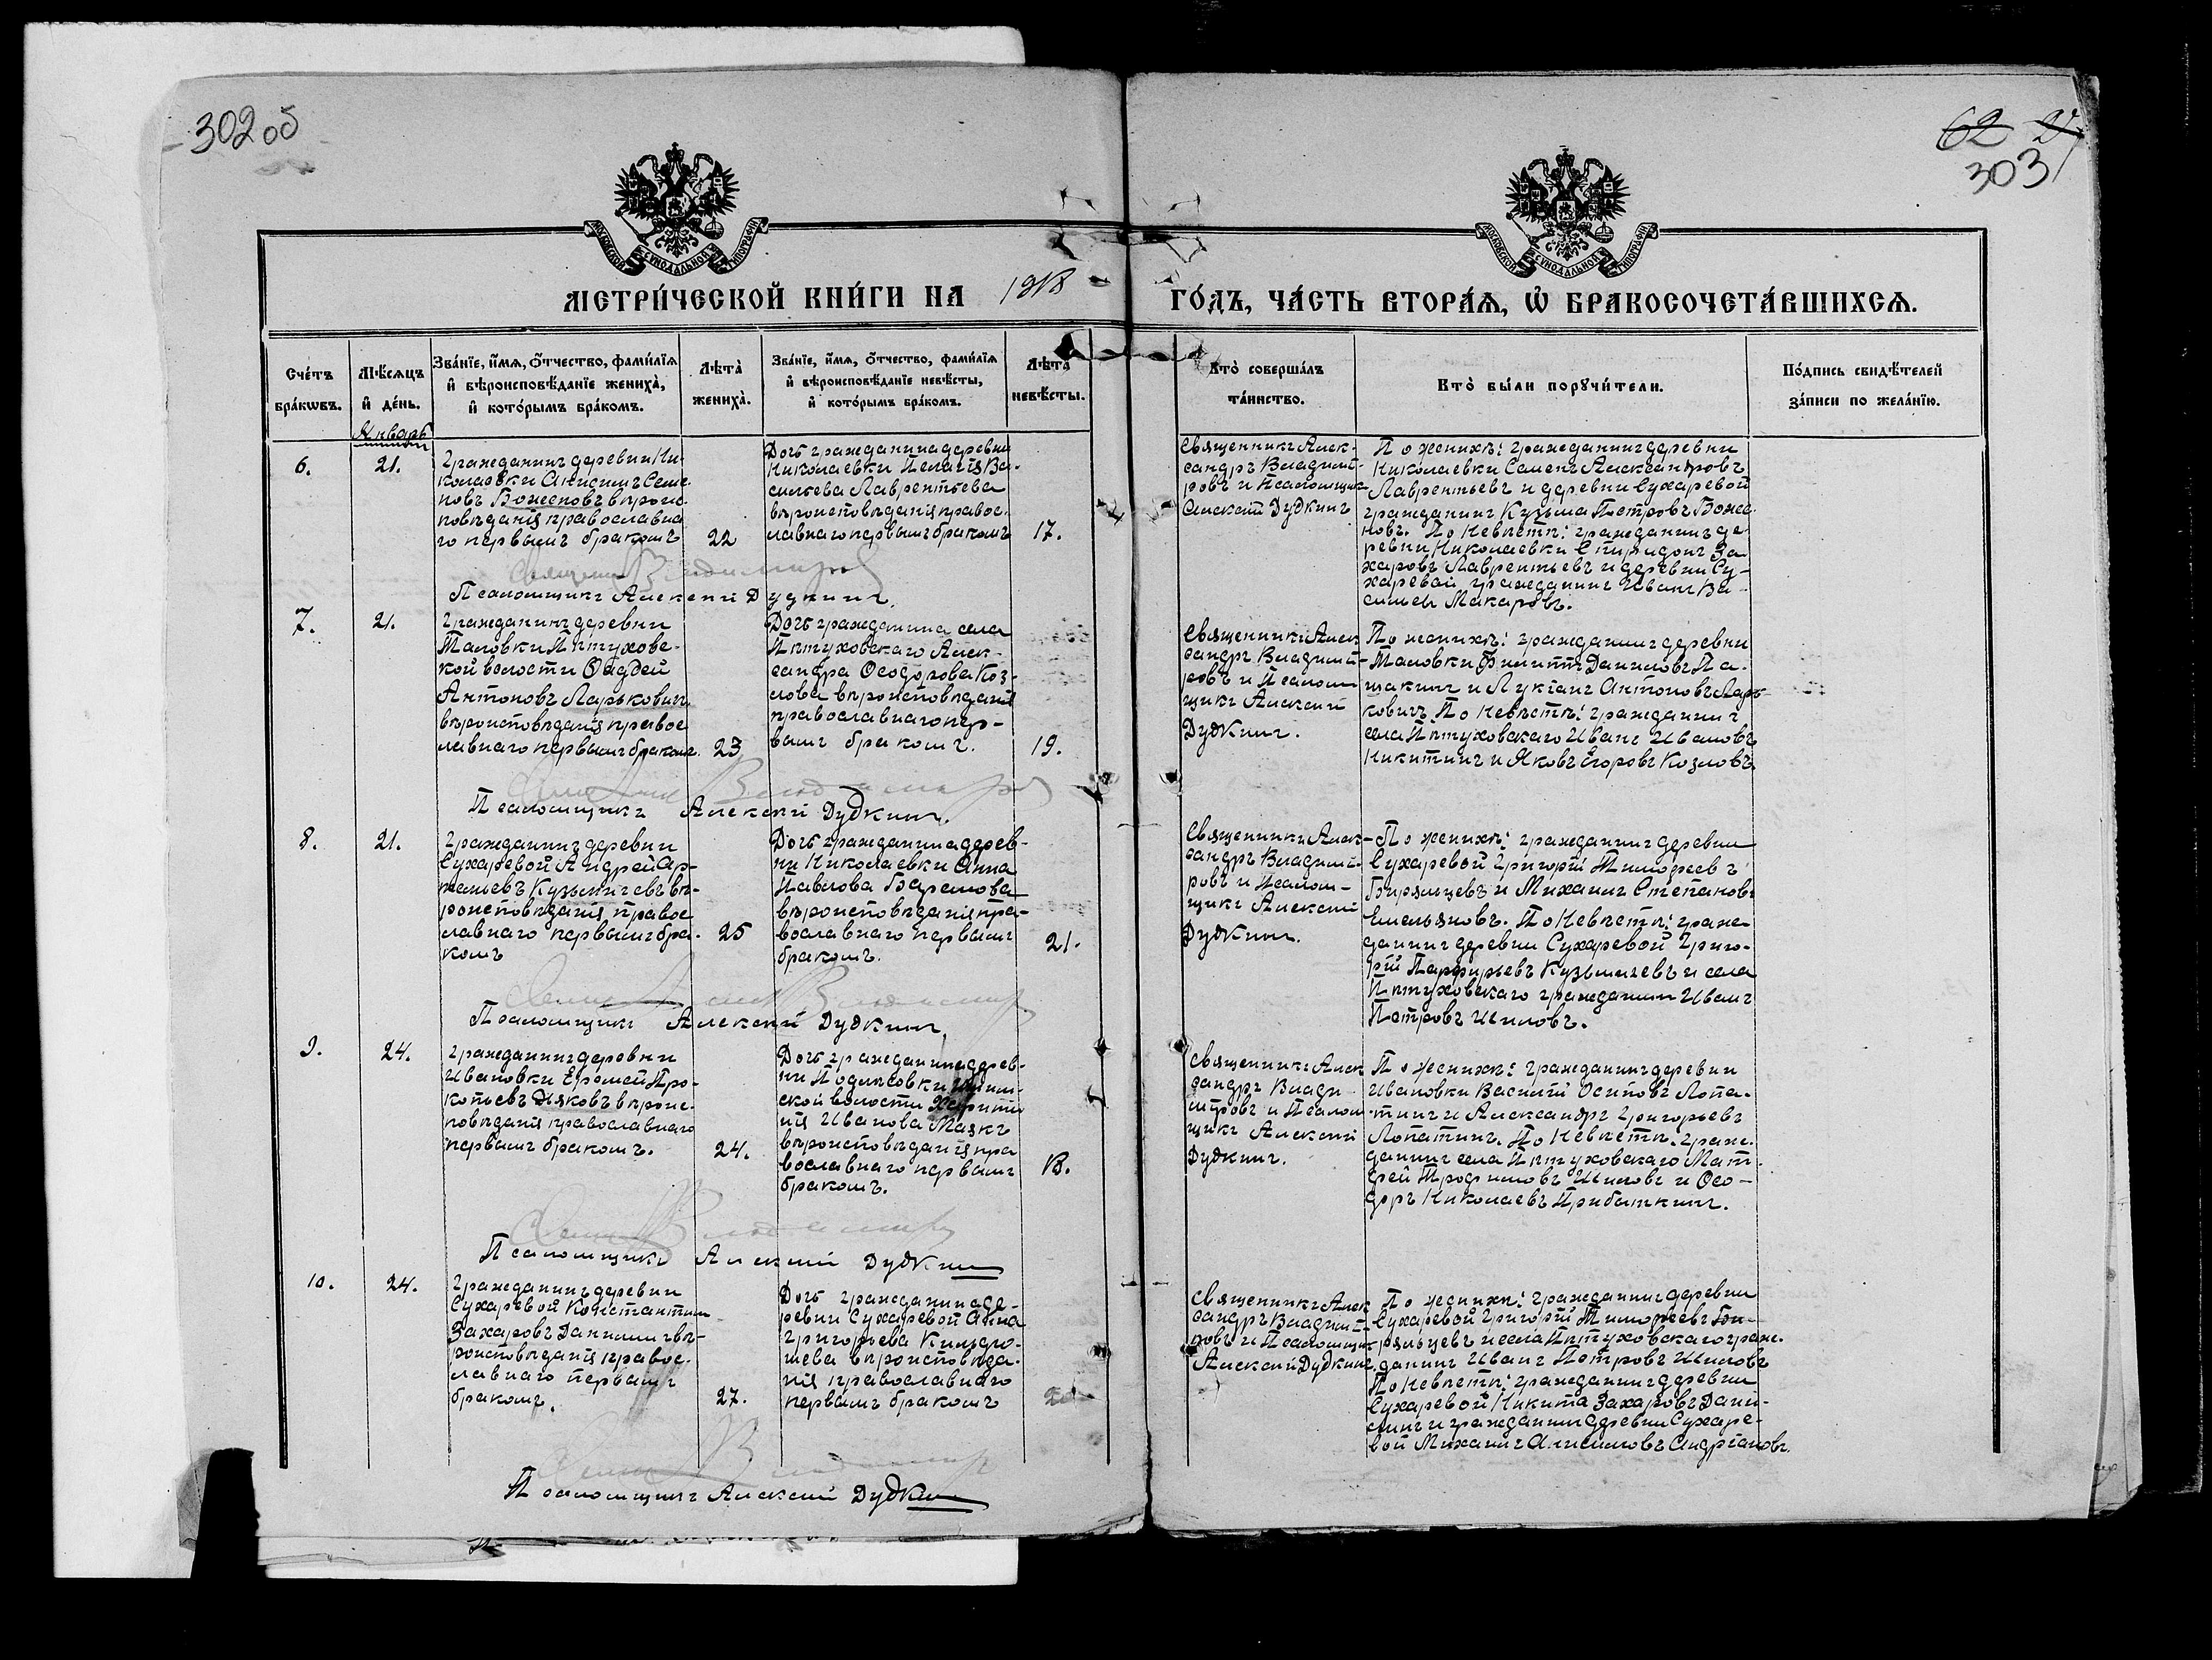 302 об
62 2
303
МОСКОВСКОЙ СѴНОДАЛЬНОЙ ТИПОГРАФІИ
МОСКОВСКОЙ СѴНОДАЛЬНОЙ ТИПОГРАФІИ
МЕТРИ́ЧЕСКОЙ КНИ́ГИ НА 1918
ГО́ДЪ, ЧА́СТЬ ВТОРА́Я, Ѡ҆ БРАКОСОЧЕТА́ВШИХСѦ.
Сче́тъ бра́кѡвъ.
Мѣ́сѧцъ и҆ де́нь.
Зва́нїе, и҆́мѧ, ѻ҆́тчество, фами́лїѧ и҆ вѣроисповѣ́данїе жениха̀, и҆ кото́рымъ бра́комъ.
Лѣ́та̀ жениха̀.
Зва́нїе, и҆́мѧ, ѻ҆́тчество, фами́лїѧ и҆ вѣроисповѣ́данїе невѣ́сты, и҆ кото́рымъ бра́комъ.
Лѣ́та̀ невѣ́сты.
Кто̀ соверша́лъ та́инство.
Кто̀ бы́ли порꙋчи́тели.
По́дпись свидѣ́телей за́писи по жела́нїю.
Январь
6.
21.
Гражданинъ деревни Ни-
колаевки Анисимъ Семе-
новъ Боженовъ вѣроис-
повѣданія православна
го первымъ бракомъ
22
Дочь гражданина деревни
Николаевки Пелагія Ва-
сильева Лаврентьева
вѣроисповѣданія правос-
лавнаго первымъ бракомъ
17.
Священникъ Алек-
сандръ Владимі-
ровъ и Псаломщик
Алексій Дудкинъ
По женихѣ: гражданинъ деревни
Николаевки Семенъ Александровъ
Лаврентьевъ и деревни Сухаревой
гражданинъ Кузьма Петровъ Боже-
новъ. По невѣстѣ: гражданинъ де-
ревни Николаевки Спиридонъ За-
харовъ Лаврентьевъ и деревни Су-
харевой гражданинъ Иванъ Ва-
сильев Макаровъ.
Священникъ Владимиров
Псаломщикъ Алексій Дудкинъ.
7.
21.
Гражданинъ деревни
Таловки Пѣтуховс-
кой волости Фаддей
Антоновъ Ларьковичъ
вѣроисповѣданія правос
лавнаго первымъ бракомъ.
23
Дочь гражданина села
Пѣтуховскаго Алек-
сандра Ѳеодорова Коз-
лова вѣроисповѣданія
православнаго пер-
вымъ бракомъ.
19.
Священникъ Алек
сандръ Владимі-
ровъ и Псалом
щикъ Алексій
Дудкинъ.
По женихѣ: гражданинъ деревни
Таловки Филиппъ Даниловъ Па-
шакинъ и Лукіанъ Антоновъ Ларь
ковичъ. По невѣстѣ: гражданинъ
села Пѣтуховскаго Иванъ Ивановъ
Никитинъ и Яковъ Егоровъ Козловъ.
Владимиров
Псаломщикъ Алексій Дудкинъ.
8.
21.
Гражданинъ деревни
Сухаревой Андрей Ар-
темьевъ Кузьмичевъ вѣ-
роисповѣданія правос
лавнаго первымъ бра-
комъ
25
Дочь гражданина дерев-
ни Николаевки Анна
Павлова Баремова
вѣроисповѣданія пра-
вославнаго первымъ
бракомъ.
21.
Священникъ Алек-
сандръ Владимі-
ровъ и Псалом-
щикъ Алексій
Дудкинъ.
По женихѣ: гражданинъ деревни
Сухаревой Григорій Тимофеевъ
Биряльцевъ и Михаилъ Степановъ
Емельяновъ. По невѣстѣ: граж-
данинъ деревни Сухаревой Григо-
рій Парфирьевъ Кузьмичевъ и села
Пѣтуховскаго гражданинъ Иванъ
Петровъ Шиловъ.
Владимир
Псаломщикъ Алексій Дудкинъ.
9.
24.
Гражданинъ деревни
Ивановки Еремей Про-
копьевъ Дяковъ вѣроис-
повѣданія православнаго
первымъ бракомъ.
24.
Дочь гражданина дерев-
ской волости Харити
нія Иванова Маякъ
вѣроисповѣданія пра
вославнаго первымъ
бракомъ.
18.
Священникъ Алек
сандръ Влади
міровъ и Псалом
щикъ Алексій
Дудкинъ.
По женихѣ: гражданинъ деревни
Ивановки Василій Осиповъ Лопа-
тинъ и Александръ Григорьевъ
Лопатинъ. По невѣстѣ: граж-
данинъ села Пѣтуховскаго Мат-
фей Трофимовъ Шиловъ и Ѳео-
доръ Николаевъ Прибыткинъ.
Владимир
Псаломщикъ Алексій Дудкин
10.
24.
Гражданинъ деревни
Сухаревой Константин
Захаровъ Данилинъ вѣ-
роисповѣданія правос-
лавнаго первымъ
бракомъ.
27.
Дочь гражданина де-
ревни Сухаревой Анна
Григорьева Кильдю-
шева вѣроисповѣда-
нія православнаго
первымъ бракомъ
Священникъ Алек
сандръ Владимі-
ровъ и Псаломщикъ
Алексій Дудкинъ.
По женихѣ: гражданинъ деревни
Сухаревой Григорій Тимофеевъ Би-
ряльцевъ и села Пѣтуховскаго граж-
данинъ Иванъ Петровъ Шиловъ
По невѣстѣ: гражданинъ деревни
Сухаревой Никита Захаровъ Дани-
линъ и гражданинъ деревни Сухаре-
вой Михаилъ Анисимовъ Андріановъ.
Владимир
Псаломщикъ Алексій Дудкин